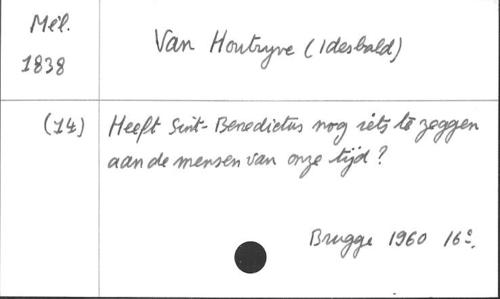 Mél.
1838
Van Houtryve (Idesbald)
(14) Heeft Sint-Benedictus nog iets te zeggen
aan de mensen van onze tijd?
Brugge 1960 16°.